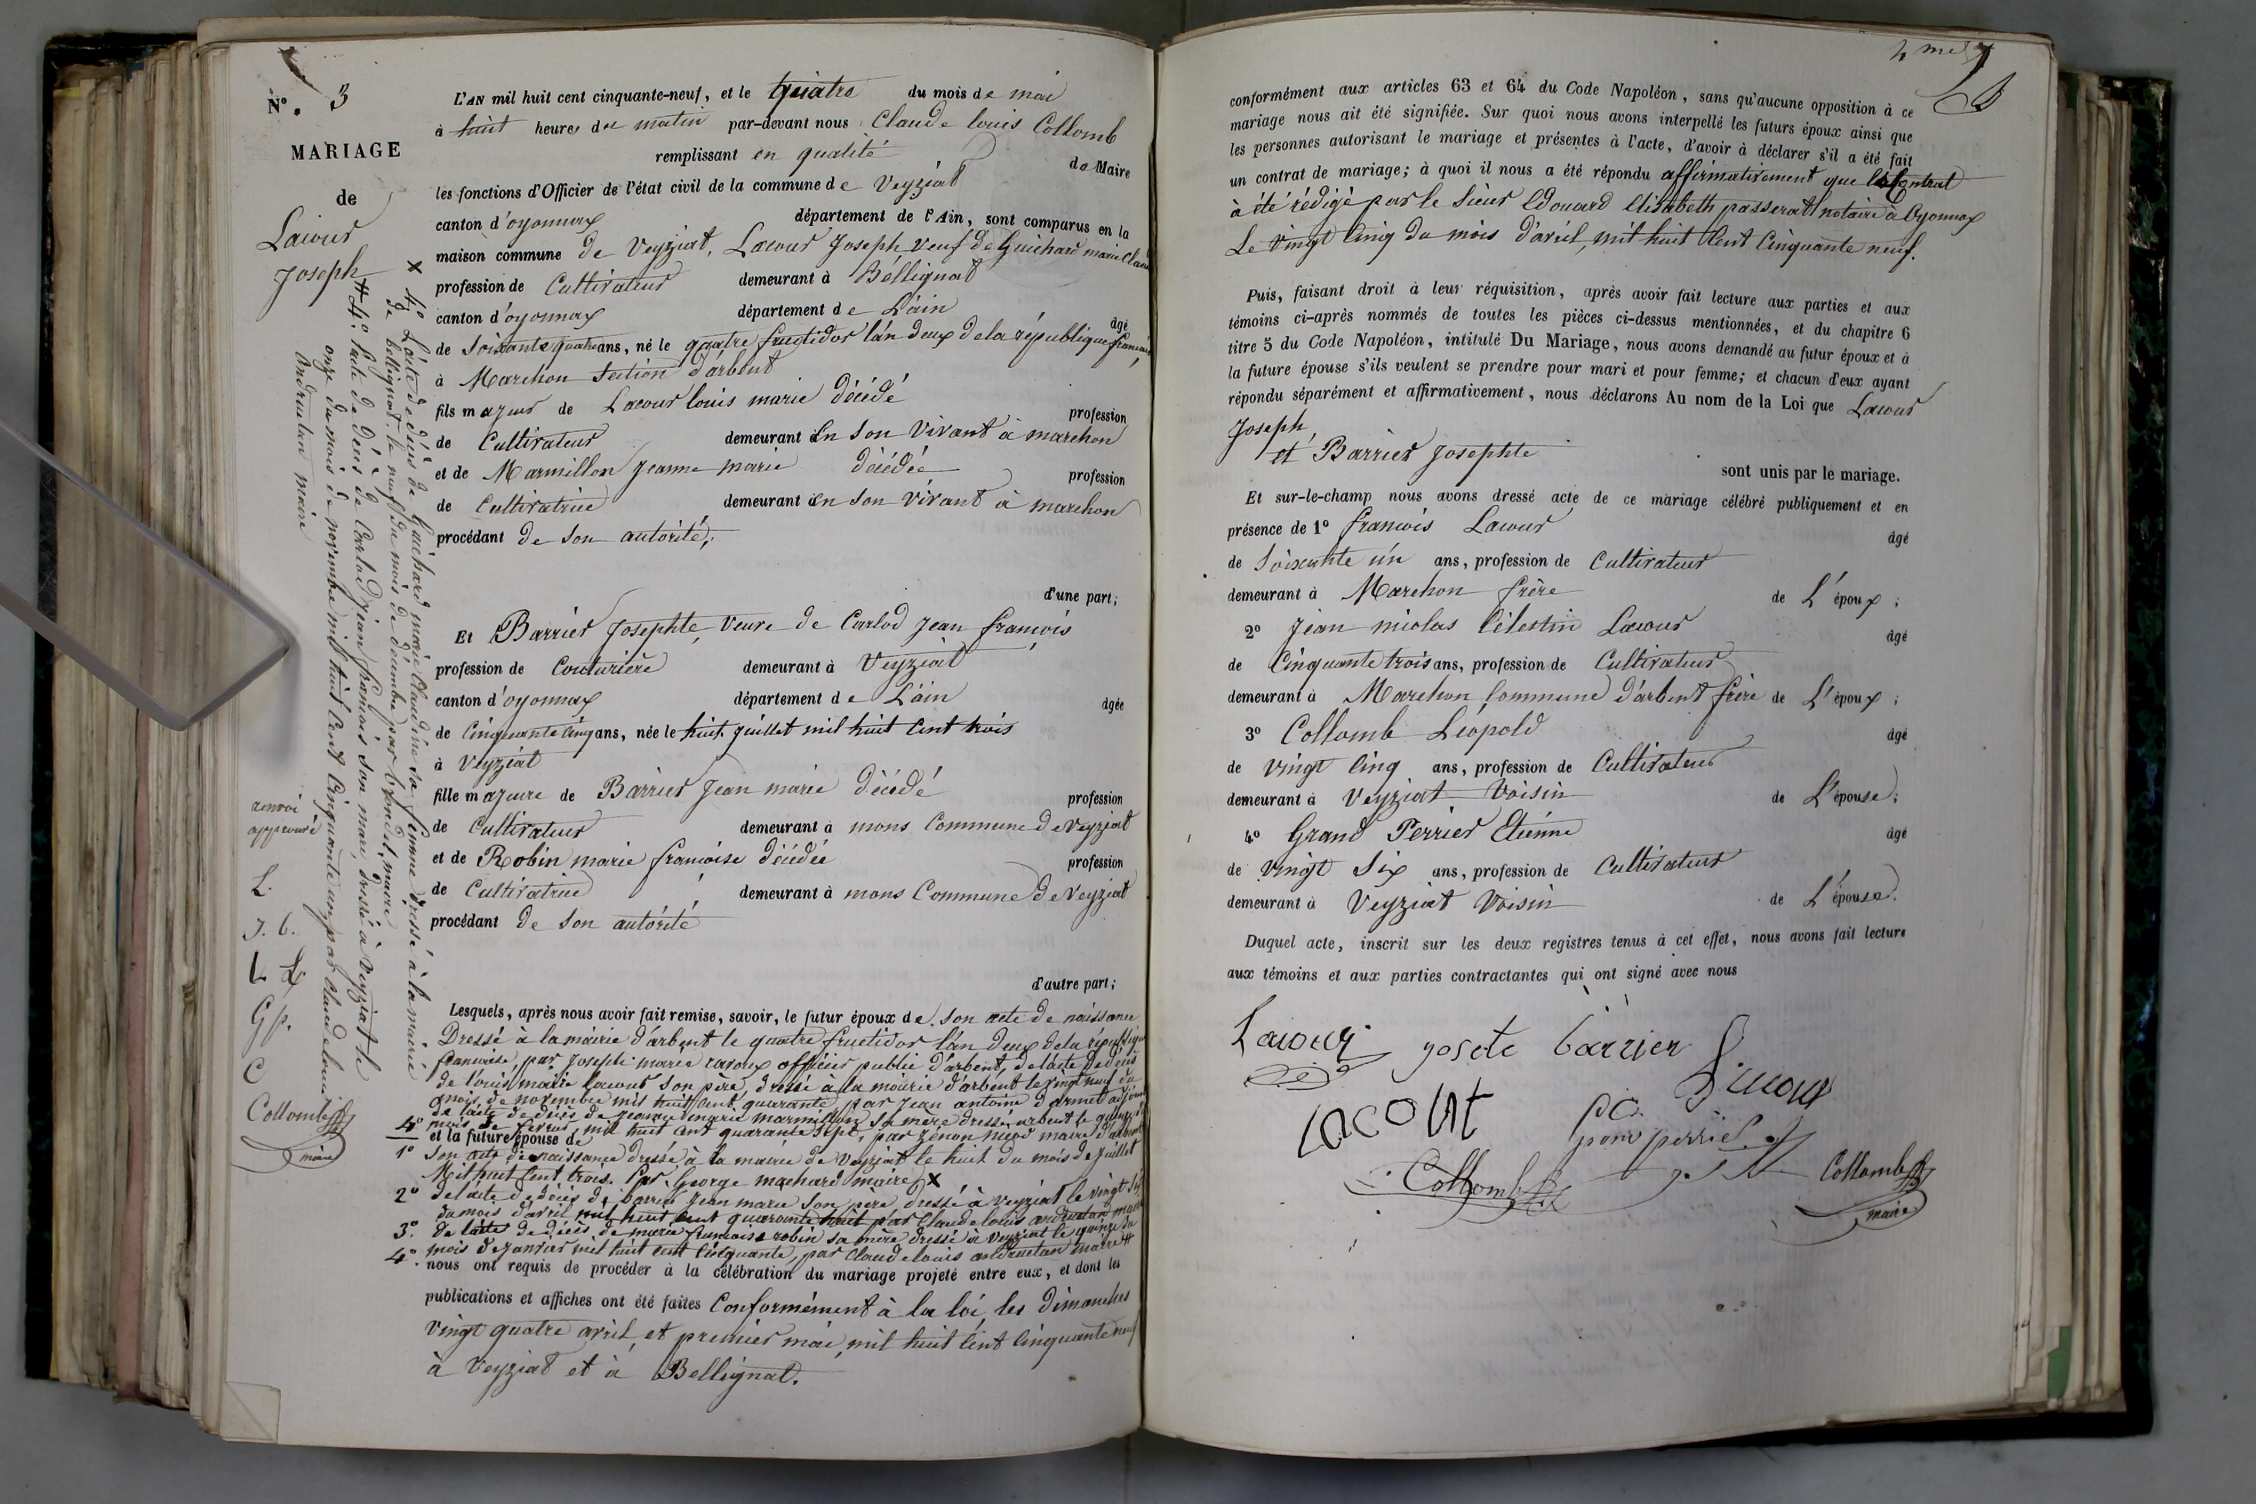 N°. 3
MARIAGE
de
Lacour
Joseph
L'AN mil huit cent cinquante-neuf, et le quatre du mois de mai
à huit heures du matin par-devant nous Claude louis Collomb
remplissant en qualité de Maire
les fonctions d'Officier de l'état civil de la commune de Veyziat
canton d'oyonnax département de l'Ain, sont comparus en la
maison commune de Veyziat, Lacour Joseph veuf de Guichard marie
profession de Cultivateur demeurant à Béllignat
canton d'oyonnax département de L'ain âgé
de Soixante quatre ans, né le quatre fructidor l'an deux de la république
à Marchon Section d'arbent
fils majeur de Lacour louis marie décédé profession
de Cultivateur demeurant en son vivant à marchon
et de Marmillon Jeanne marie décédée profession
de Cultivatrice demeurant en son vivant à marchon
procédant de son autorité,
d'une part;
Et Barrier Josephte, veuve de Carlod Jean françois
profession de Couturière demeurant à Veyziat
canton d'oyonnax département de L'ain âgée
de Cinquante cinq ans, née le huit Juillet mil huit Cent trois
à Veyziat
fille majeure de Barrier Jean marie décédé profession
de Cultivateur demeurant à mons Commune de Veyziat
et de Robin marie françoise décédée profession
de Cultivatrice demeurant à mons Commune de Veyziat
procédant de son autorité
d'autre part;
Lesquels, après nous avoir fait remise, savoir, le futur époux de son acte de naissance
Dressé à la mairie d'arbent le quatre fructidor l'an deux de la république
francaise, par Joseph marie ravoux officier public d'arbent, de l'acte de décès
de louis marie lacour son père, dressé à la mairie d'arbent le vingt neuf du
mois de novembre mil huit cent quarante par Jean antoine darmet adjoint
de l'acte de décès de Jeanne marie marmillon sa mère dressé à arbent le
4° mois de fevrier mil huit cent quarante sept, par zénon maire d'arbent
et la future épouse de
1° Son acte de naissance dressé à la mairie de Veyziat le huit du mois de Juillet
Mil huit Cent trois. Par George machard maire X
2° de l'acte de décès de barrier Jean marie son père dressé à veyziat le vingt
du mois d'avril mil huit cent quarante huit par Claude louis andruetan maire
3° de l'acte de décès de marie francoise robin sa mère dressé à veyziat le quinze du
4° mois de Janvier mil huit cent cinquante, par Claude louis andruetan maire #
nous ont requis de procéder à la célébration du mariage projeté entre eux, et dont les
publications et affiches ont été faites Conformément à la loi, les dimanches
vingt quatre avril, et premier mai, mil huit cent cinquante neuf
à Veyziat et à Bellignat.
X 4° L'acte de décès de Guichard marie Claudine sa femme dressé à la mairie
de bellignat le neuf du mois de décembre par maire
# 4° l'acte de décès de Carlod Jean francois son mari, dressé à Veyziat le
onze du mois de novembre mil huit Cent Cinquante un par Claude louis
andruetan maire
renvoi
approuvé
L.
J. b.
L L
Gp.
C
Collomb
maire
conformément aux articles 63 et 64 du Code Napoléon, sans qu'aucune opposition à ce
mariage nous ait été signifiée. Sur quoi nous avons interpellé les futurs époux ainsi que
les personnes autorisant le mariage et présentes à l'acte, d'avoir à déclarer s'il a été fait
un contrat de mariage; à quoi il nous a été répondu affirmativement que le Contrat
à été rédigé par le Sieur Edouard Elisabeth passerat notaire à Oyonnax
Le Vingt Cinq du mois d'avril, mil huit Cent Cinquante neuf.
Puis, faisant droit à leur réquisition, après avoir fait lecture aux parties et aux
témoins ci-après nommés de toutes les pièces ci-dessus mentionnées, et du chapitre 6
titre 5 du Code Napoléon, intitulé Du Mariage, nous avons demandé au futur époux et à
la future épouse s'ils veulent se prendre pour mari et pour femme; et chacun d'eux ayant
répondu séparément et affirmativement, nous déclarons Au nom de la Loi que Lacour
Joseph
et Barrier Josephte
sont unis par le mariage.
Et sur-le-champ nous avons dressé acte de ce mariage célébré publiquement et en
présence de 1° francois Lacour âgé
de Soixante un ans, profession de Cultivateur
demeurant à Marchon frère de L'époux;
2° Jean nicolas Célestin Lacour âgé
de Cinquante trois ans, profession de Cultivateur
demeurant à Marchon Commune d'arbent frère de L'époux;
3° Collomb Léopold âgé
de vingt Cinq ans, profession de Cultivateur
demeurant à Veyziat Voisin de L'épouse;
4° Grand Perrier Etienne âgé
de vingt Six ans, profession de Cultivateur
demeurant à Veyziat Voisin de L'épouse.
Duquel acte, inscrit sur les deux registres tenus à cet effet, nous avons fait lecture
aux témoins et aux parties contractantes qui ont signé avec nous
Lacour josete barrier
lacour
perrier
Collomb
Collomb
maire